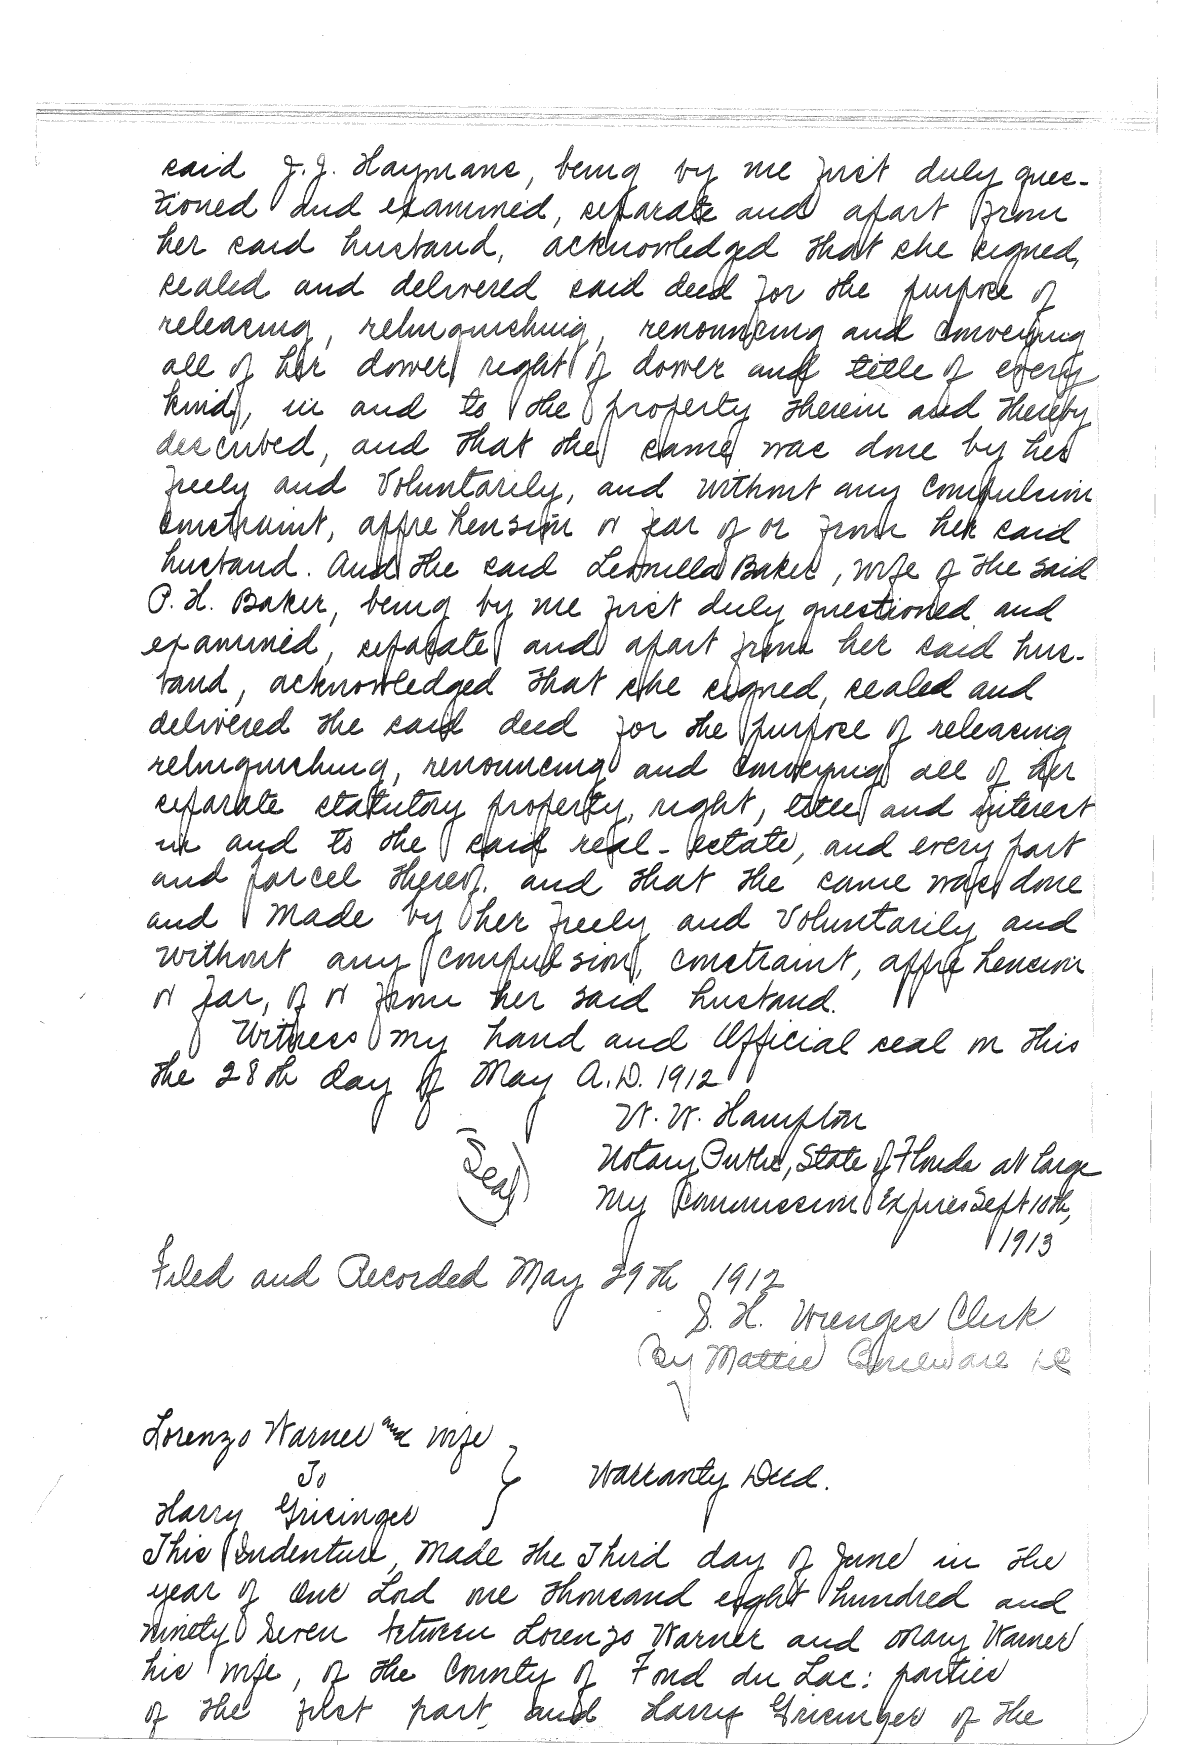 said J. J. Haymans, being by me first duly ques-
tioned and examined, separate and apart from
her said husband, acknowledged that she signed,
sealed and delivered said deed for the purpose of
releasing, relinquishing, renouncing and conveying
all of her dower, right of dower and title of every
kind, in and to the property therein and thereby
described, and that the same was done by her
freely and Voluntarily, and without any Compulsion
constraint, apprehension or fear of or from her said
husband. And the said Leonella Baker, wife of the said
P. H. Baker, being by me first duly questioned and
examined, separate and apart from her said hus-
band, acknowledged that she signed, sealed and
delivered the said deed for the purpose of releasing
relinquishing, renouncing and conveying all of her
separate statutory property, right, title and interest
in and to the said real-estate, and every part
and parcel thereof. and that the same was done
and Made by her freely and Voluntarily and
without any compulsion, constraint, apprehension
or fear, of or from her said husband.
Witness my hand and Official seal on this
the 28th day of May A.D. 1912
W. W. Hampton
(Seal) Notary Public, State of Florida at large
My Commission Expires Sept 10th,
1913
Filed and Recorded May 29th 1912
S. H. Wienges Clerk
By Mattie
Lorenzo Warner and wife
To
Warranty Deed.
Harry Grieinger
This Indenture, Made the Third day of June in the
year of Our Lord one thousand eight hundred and
ninety Seven between Lorenzo Warner and Mary Warner
his wife, of the County of Fond du Lac: parties
of the first part, and Harry Grieinger of the